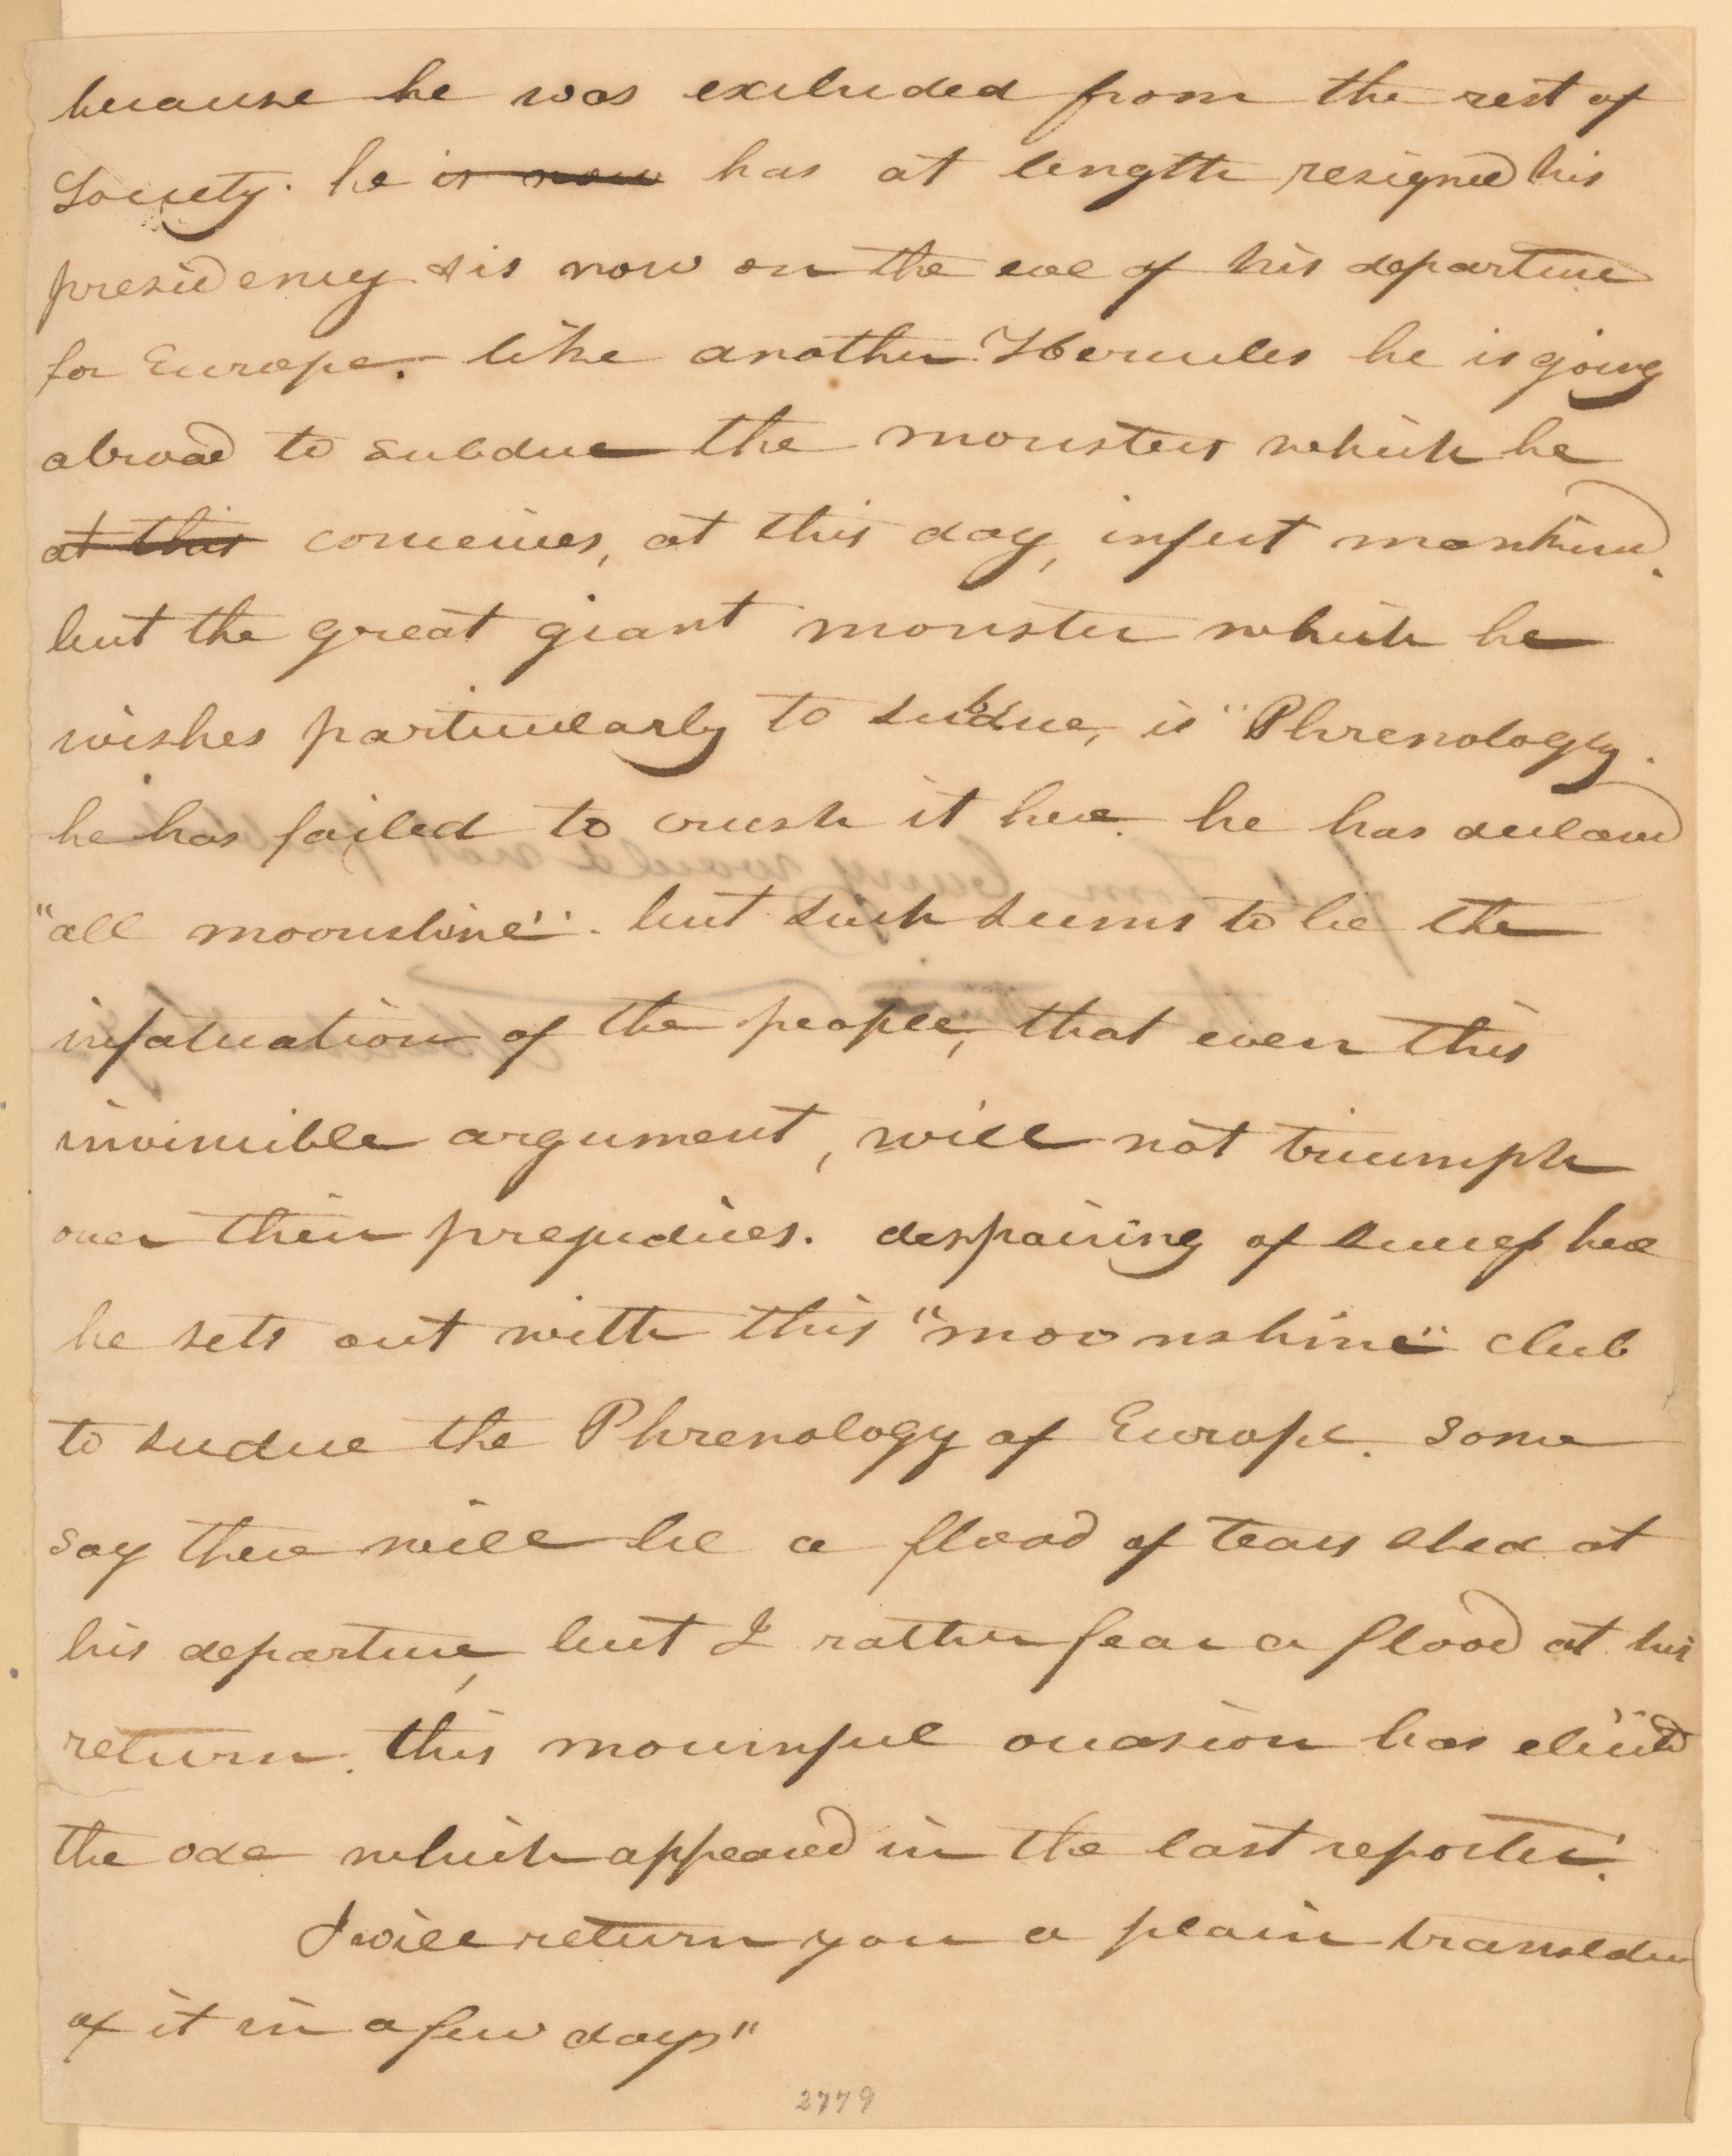 because he was excluded from the rest of
Society. he is now has at length resigned his
presidency & is now on the eve of his departure
for Europe. like another Hercules he is going
abroad to subdue the monsters which he
at this conceives, at this day, infest mankind.
but the great giant monster which he
wishes particularly to subdue, is "Phrenology.
he has failed to crush it here. he has declared
"all moonshine". but such seems to be the
infatuation of the people, that even this
invincible argument, will not triumph
over their prejudices. despairing of success here
he sets out with this "moonshine" club
to sudue the Phrenology of Europe. Some
say there will be a flood of tears shed at
his departure, but I rather fear a flood at his
return. this mournful occasion has elicited
the ode which appeared in the last reporter.
I will return you a plain
of it in a few days"
2779